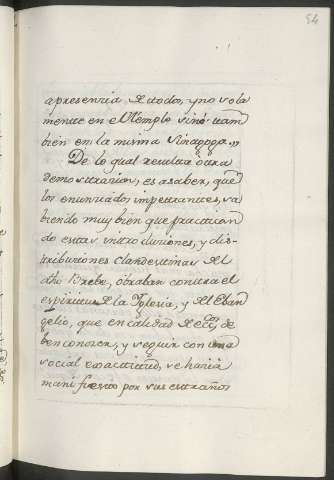 54
apresencia de todos, y no sola
mente en el Templo sinó tam
bien en la misma Sinagoga.,,
De lo qual resulta otra
demostracion, es asaber, que
los enunciados impetrantes, sa
biendo muy bien que practican
do estas introduciones, y dis-
tribuciones clandestinas del
dho Brebe, óbraban contra el
espiritu de la Yglesia, y del Eban
gelio, que en calidad de eccos, de
ben conocer, y seguir con una
social exactitud, se haria
manifiesto por sus estraños